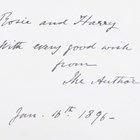 Rosie and Harry
With every good wish
from
The Author
Jan. 4th 1896-